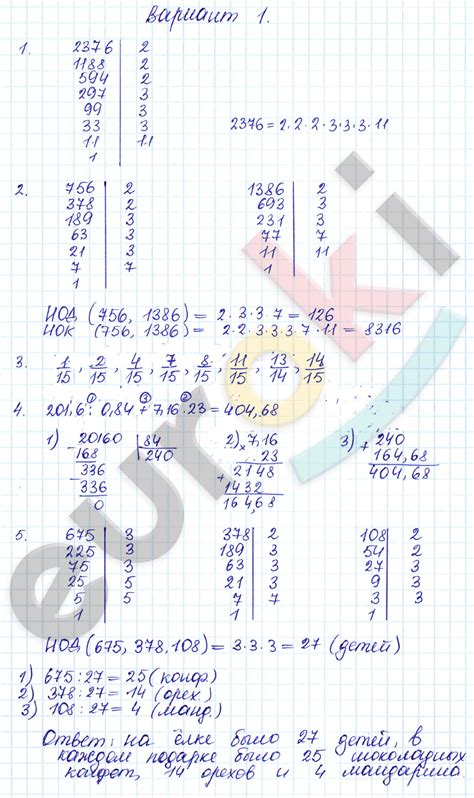 Вариант 1.
1. 2376 | 2
1188 | 2
594 | 2
297 | 3
99 | 3
33 | 3
11 | 11
1
2376 = 2·2·2·3·3·3·11
2. 756 | 2
378 | 2
189 | 3
63 | 3
21 | 3
7 | 7
1
1386 | 2
693 | 3
231 | 3
77 | 7
11 | 11
1
НОД (756, 1386) = 2·3·3·7 = 126
НОК (756, 1386) = 2·2·3·3·3·7·11 = 8316
3. 1/15, 2/15, 4/15, 7/15, 8/15, 11/15, 13/14, 14/15
4. 201,6 : 0,84 + 7,16 · 23 = 404,68
① ③ ②
1) 20160 | 84
168 | 240
336
336
0
2) × 7,16
23
+ 2148
1432
164,68
3) + 240
164,68
404,68
5. 675 | 3
225 | 3
75 | 3
25 | 5
5 | 5
1
378 | 2
189 | 3
63 | 3
21 | 3
7 | 7
1
108 | 2
54 | 2
27 | 3
9 | 3
3 | 3
1
НОД (675, 378, 108) = 3·3·3 = 27 (детей)
1) 675 : 27 = 25 (конф.)
2) 378 : 27 = 14 (орех.)
3) 108 : 27 = 4 (манд.)
Ответ: на ёлке было 27 детей, в
каждом подарке было 25 шоколадных
конфет, 14 орехов и 4 мандарина.
euroki